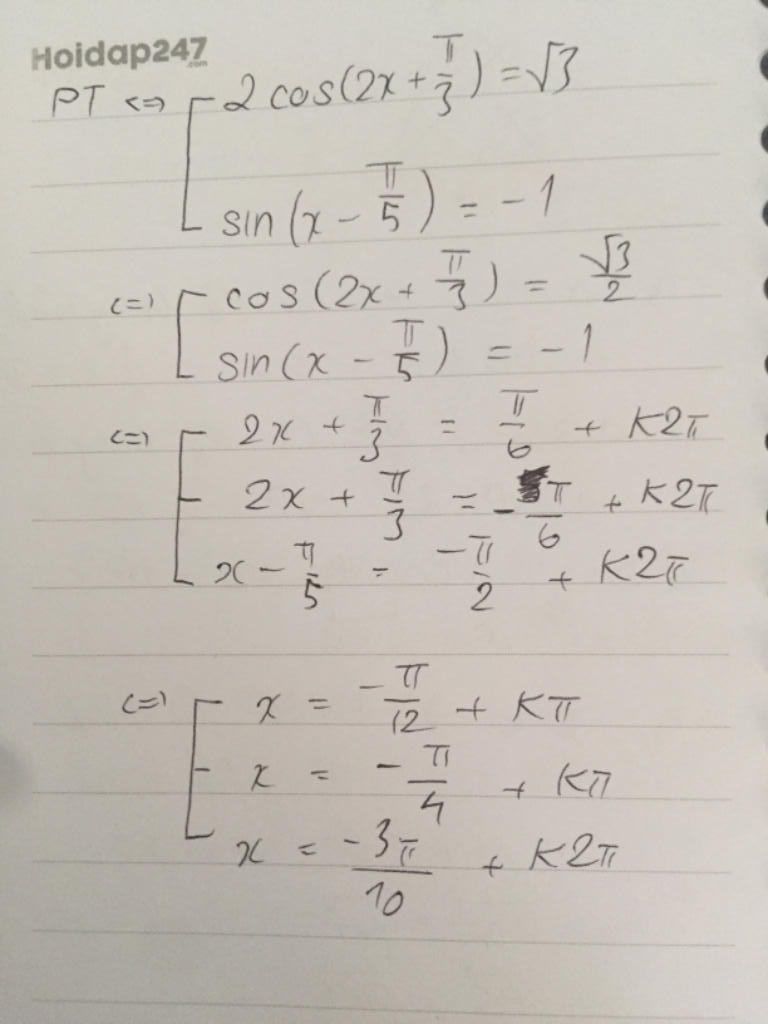 Hoidap247
.com
PT <=> [ 2 cos(2x + π/3) = √3
sin(x - π/5) = -1
<=> [ cos(2x + π/3) = √3/2
sin(x - π/5) = -1
<=> [ 2x + π/3 = π/6 + K2π
2x + π/3 = -π/6 + K2π
x - π/5 = -π/2 + K2π
<=> [ x = -π/12 + Kπ
x = -π/4 + Kπ
x = -3π/10 + K2π